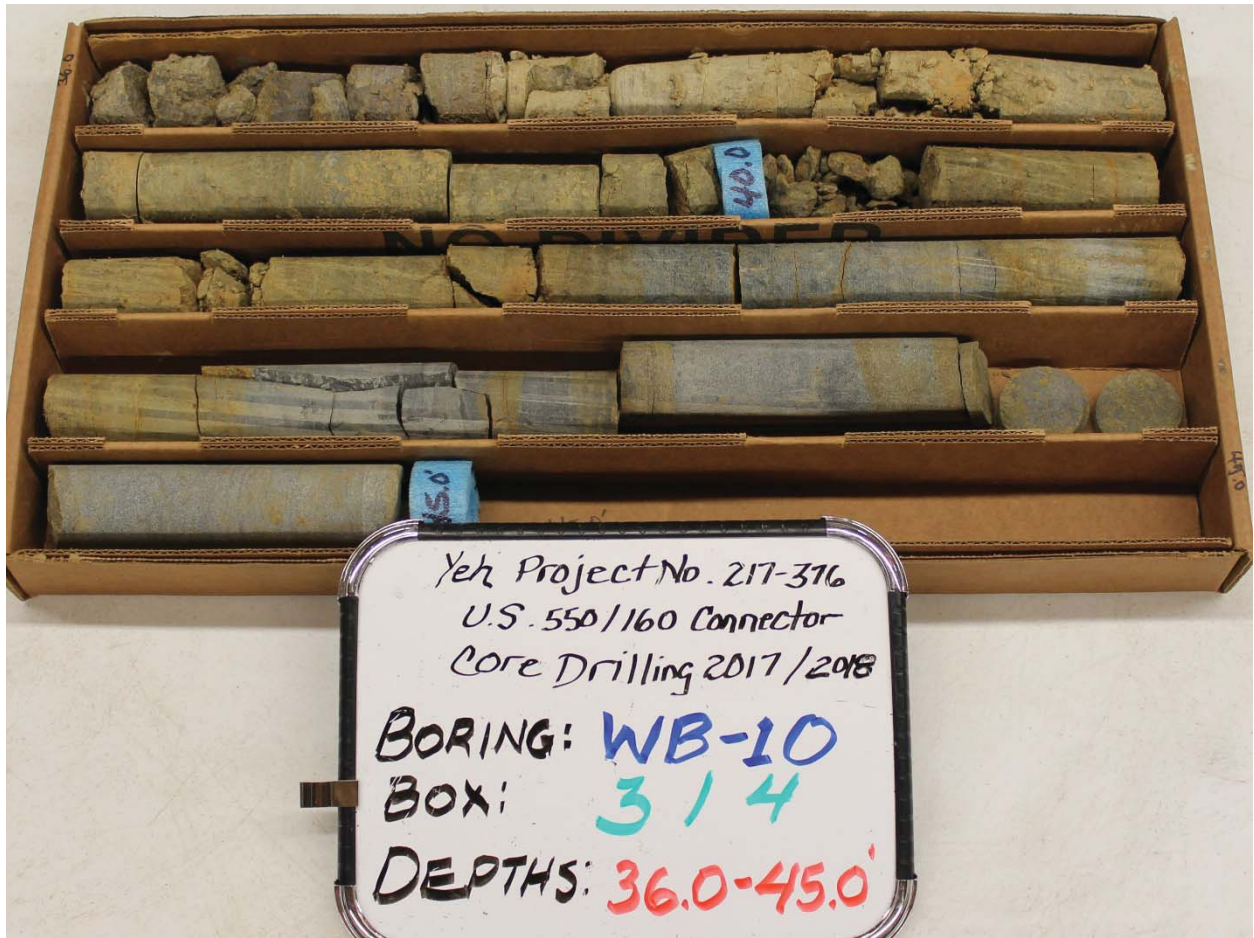 36.0
40.0
NO DIVIDER
45.0
45.0'
Yeh Project No. 217-376
U.S. 550/160 Connector
Core Drilling 2017/2018
BORING: WB-10
BOX: 3 / 4
DEPTHS: 36.0-45.0'